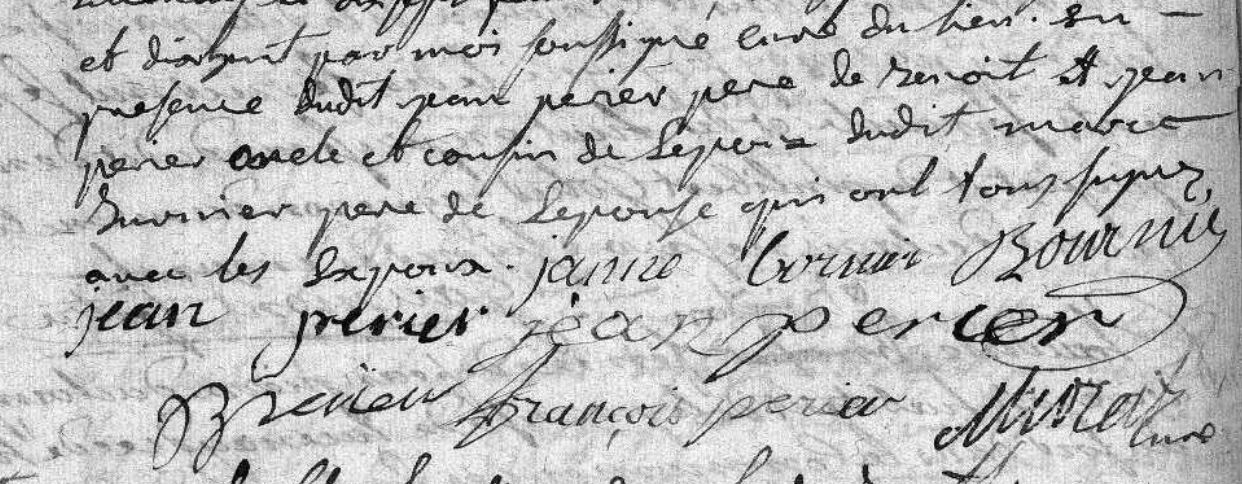 et par moi soussigné curé du lieu. en
presence dudit jean perier pere de benoit et jean
perier oncle et cousin de Lepoux dudit marc
burnier pere de Lepouse qui ont tous signez
avec les Expoux. janne bornier Bournier
jean perier jean perier
françois perier curé